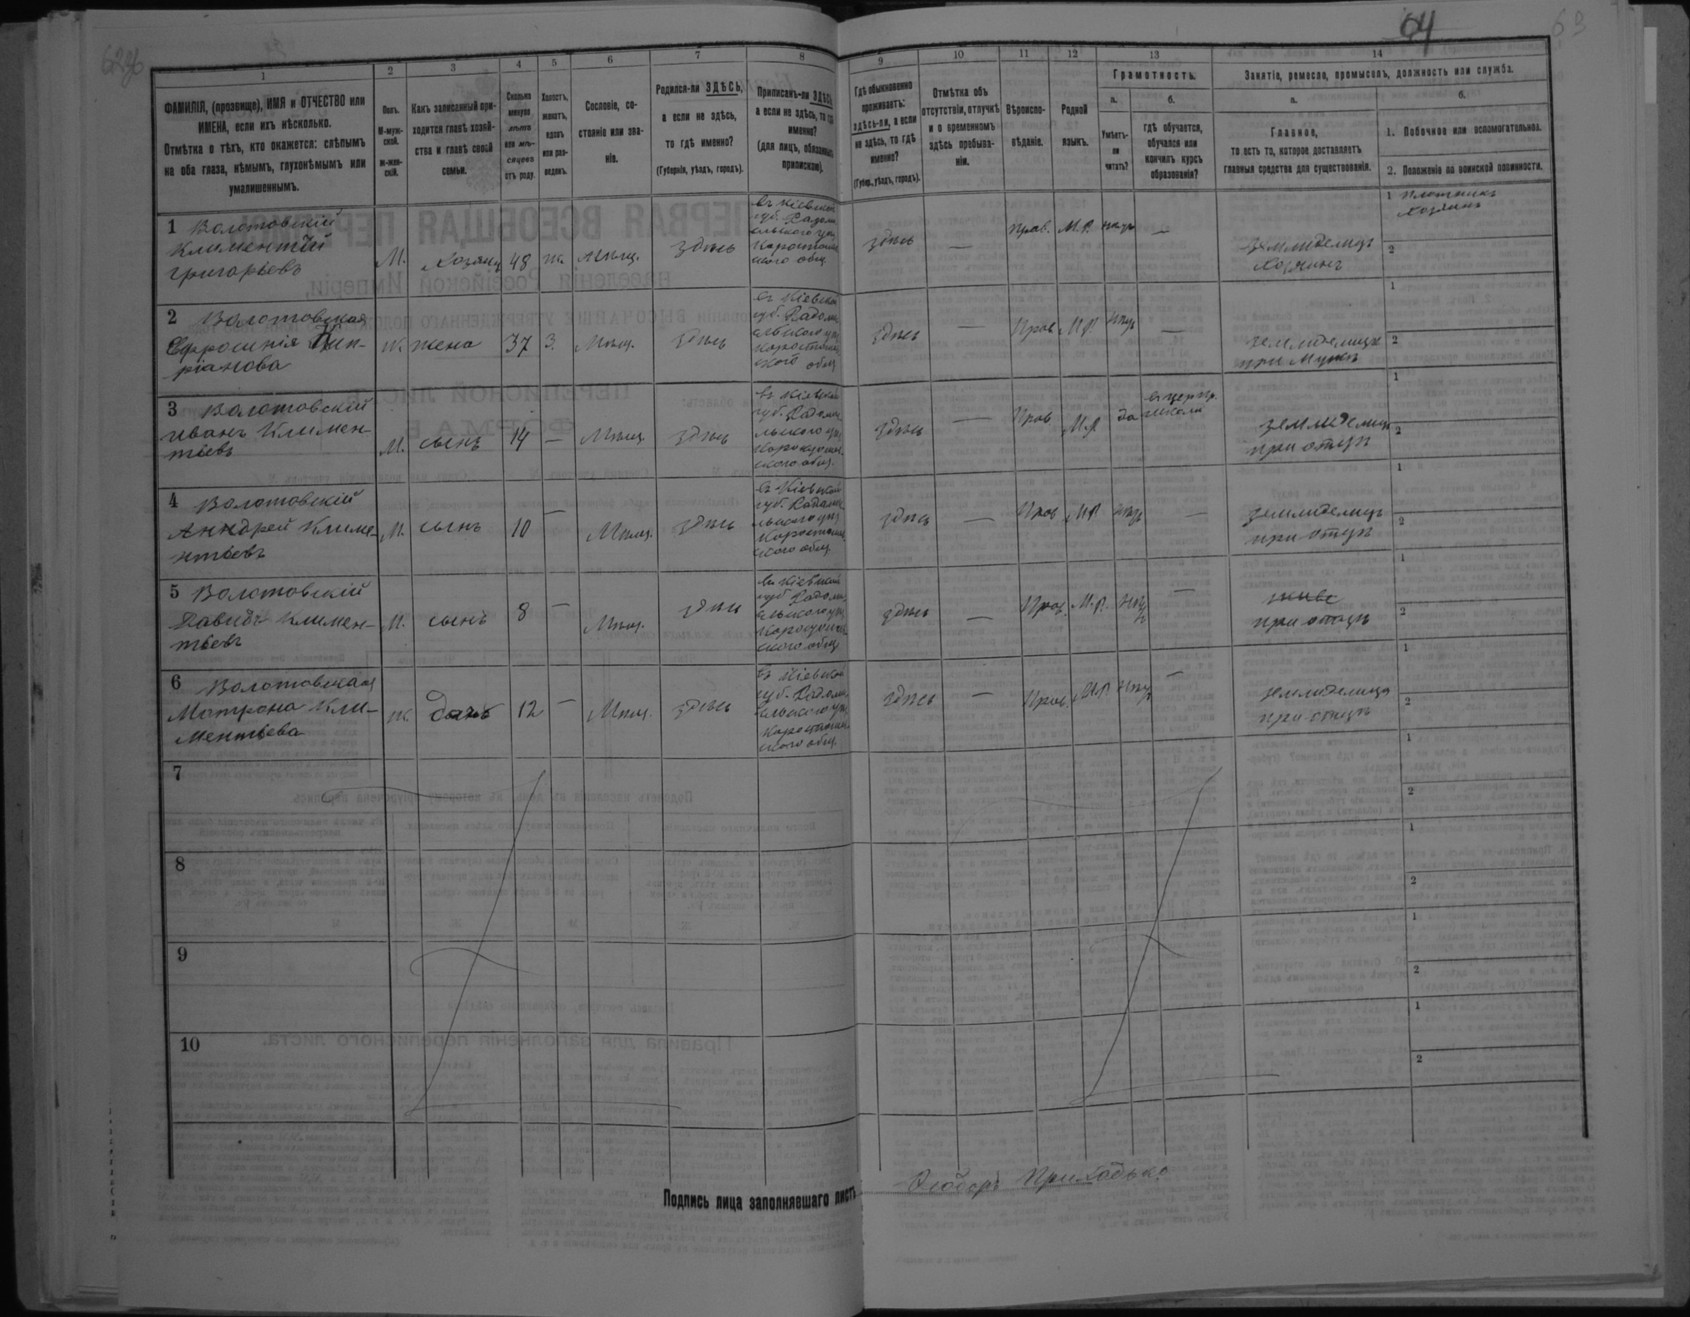 64
1
2
3
4
5
6
7
8
9
10
11
12
13
14
ФАМИЛІЯ, (прозвище), ИМЯ и ОТЧЕСТВО или
ИМЕНА, если ихъ нѣсколько.
Отмѣтка о тѣхъ, кто окажется: слѣпымъ
на оба глаза, нѣмымъ, глухонѣмымъ или
умалишеннымъ.
Полъ.
М-муж-
ской.
Ж-жен-
скій.
Какъ записанный при-
ходится главѣ хозяй-
ства и главѣ своей
семьи.
Сколько
минуло
лѣтъ
или мѣ-
сяцевъ
отъ роду.
Холостъ,
женатъ,
вдовъ
или раз-
веденъ.
Сословіе, со-
стояніе или зва-
ніе.
Родился-ли ЗДѢСЬ,
а если не здѣсь,
то гдѣ именно?
(Губернія, уѣздъ, городъ).
Приписанъ-ли ЗДѢСЬ,
а если не здѣсь, то гдѣ
именно?
(для лицъ, обязанныхъ
припискою).
Гдѣ обыкновенно
проживаетъ:
здѣсь-ли, а если
не здѣсь, то гдѣ
именно?
(Губерн., уѣздъ, городъ).
Отмѣтка объ
отсутствіи, отлучкѣ
и о временномъ
здѣсь пребыва-
ніи.
Вѣроиспо-
вѣданіе.
Родной
языкъ.
Грамотность.
а.
б.
Умѣетъ-
ли
читать?
гдѣ обучается,
обучался или
кончилъ курсъ
образованія?
Занятіе, ремесло, промыселъ, должность или служба.
а.
б.
Главное,
то есть то, которое доставляетъ
главныя средства для существованія.
1. Побочное или вспомогательное.
2. Положеніе по воинской повинности.
1 Волотовскій
Климентій
Григорьевъ
М. Хозяинъ 48 ж. мѣщ. здѣсь
въ Кіевской
губ. Радом
ельскаго уѣз
Коростыше
ского общ
здѣсь — Прав. М.Р. нѣтъ —
земледѣлецъ
Хозяинъ
1 Плотникъ
Хозяинъ
2
2 Волотовская
Ефросинія
ріанова
ж. жена 37 з. Мѣщ. здѣсь
въ Кіевской
губ. Радом
ельскаго уѣз
Коростыше
ского общ
здѣсь — Прав М.Р нѣтъ —
земледѣлица
при Мужѣ
1
2
3 Волотовскій
Иванъ Климен-
тьевъ
М. сынъ 14 — Мѣщ здѣсь
въ Кіевской
губ. Радом
ельскаго уѣз
Коростыше
ского общ.
здѣсь — Прав М.Р. да
въ церк.пр.
школѣ
земледѣлецъ
при отцѣ
1
2
4 Волотовскій
Андрей Климе-
нтьевъ
М. сынъ 10 — Мѣщ. здѣсь
въ Кіевской
губ. Радом
ельскаго уѣз
Коростыше
ского общ
здѣсь — Прав М.Р нѣтъ —
земледѣлецъ
при отцѣ
1
2
5 Волотовскій
Давидъ Климен-
тьевъ
М. сынъ 8 — Мѣщ. здѣсь
въ Кіевской
губ. Радом
ельскаго уѣз
Коростыше
ского общ
здѣсь — Прав М.Р. нѣтъ —
при отцѣ
1
2
6 Волотовская
Матрона Кли-
ментьева
ж. дочь 12 — Мѣщ. здѣсь
въ Кіевской
губ. Радом
ельскаго уѣз
Коростыше
ского общ.
здѣсь — Прав М.Р нѣтъ —
земледѣлица
при отцѣ
1
2
7
1
2
8
1
2
9
1
2
10
1
2
Подпись лица заполнявшаго листъ Ѳеодоръ Приходько